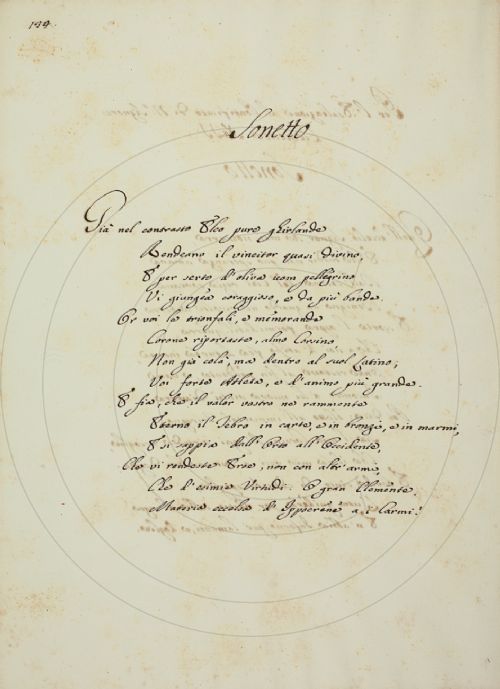 144.
Sonetto
Già nel contrasto Eleo pure ghirlande
Rendeano il vincitor quasi divino,
E per serto d'oliva uom pellegrino
Vi giungea coraggioso, e da più bande.
Or voi le trionfali, e memorande
Corone riportaste, almo Corsino,
Non già colà, ma dentro al suol Latino;
Voi forte Atleta, e d'animo più grande.
E fia, che il valor vostro ne rammente
Eterno il Tebro in carte, e in bronzi, e in marmi,
E si sappia dall'Orto all'Occidente,
Che vi rendeste tale, non con altr'armi,
Che d'esimie Virtudi. O gran Clemente
Materia eccelsa d'Ippocrene a i Carmi!